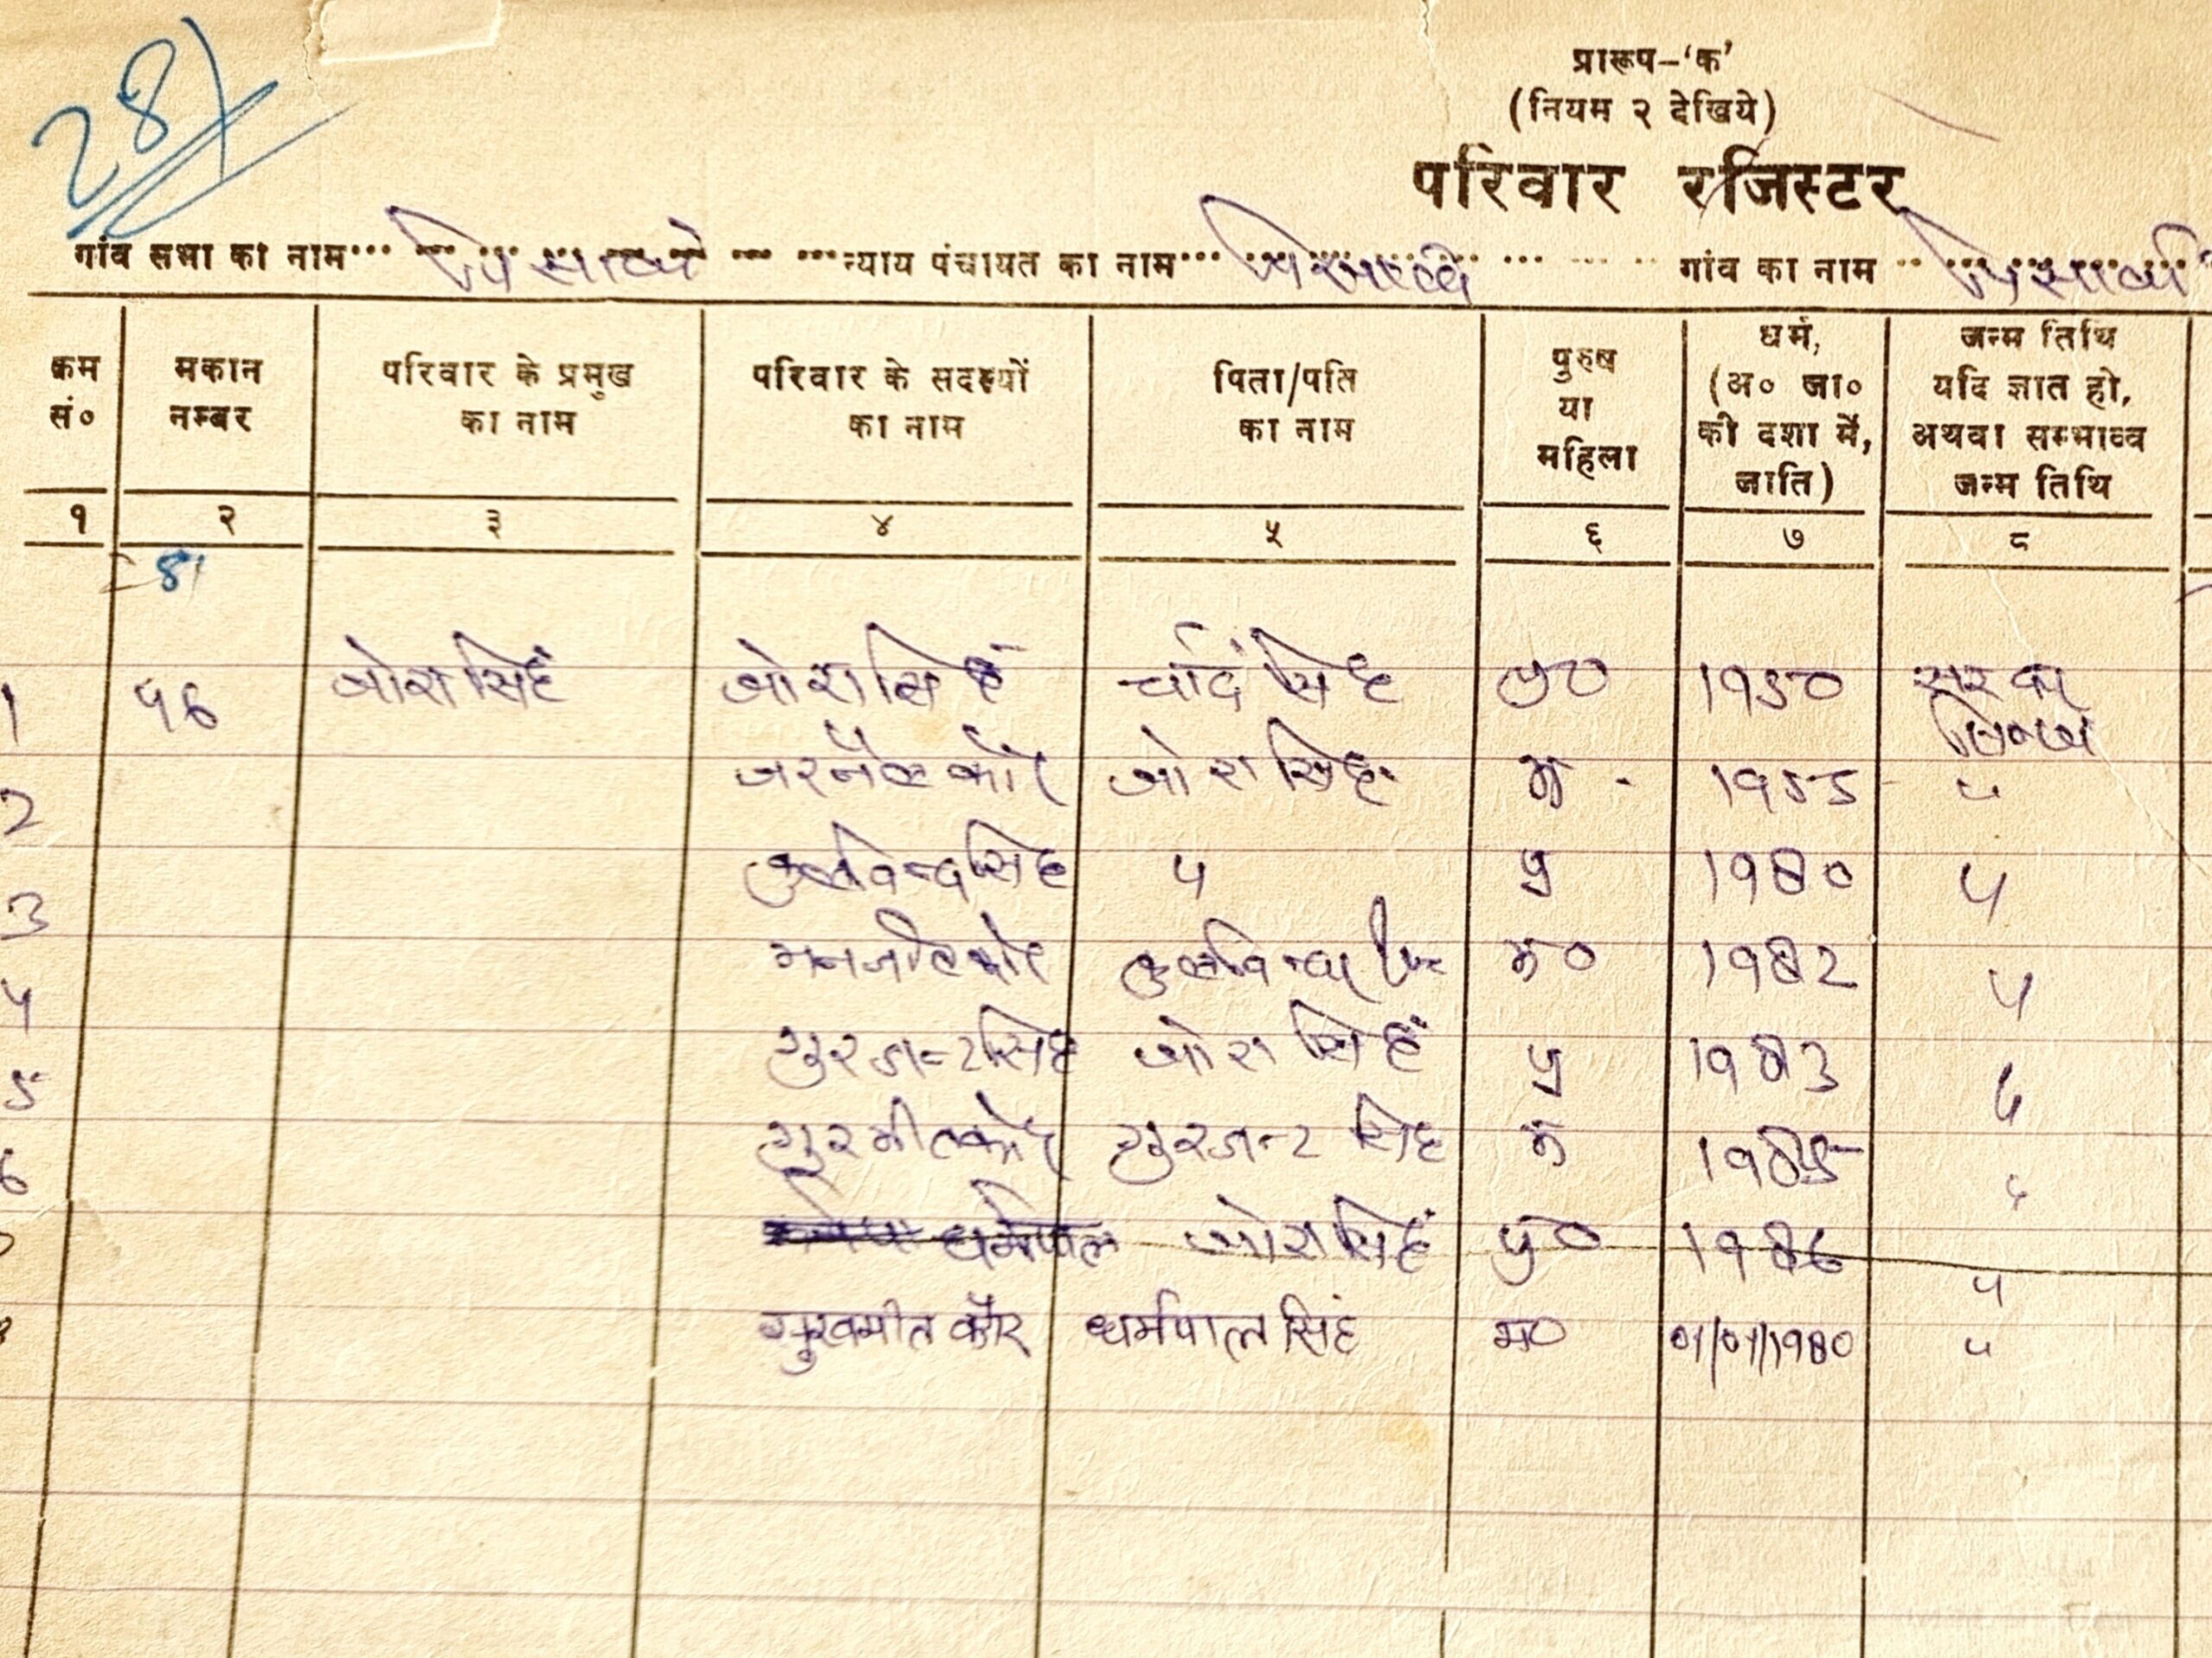 28
प्रारूप-‘क’
(नियम २ देखिये)
परिवार रजिस्टर
गांव सभा का नाम... ... ...न्याय पंचायत का नाम... ... गांव का नाम ...
क्रम सं० मकान नम्बर परिवार के प्रमुख का नाम परिवार के सदस्यों का नाम पिता/पति का नाम पुरुष या महिला धर्म, (अ० जा० की दशा में, जाति) जन्म तिथि यदि ज्ञात हो, अथवा सम्भाव्य जन्म तिथि
१ २ ३ ४ ५ ६ ७ ८
81
1 96 जोरा सिहं जोरा सिहं चांद सिंह पु० 1950
2 जरनैल कौर जोरा सिंह म 1955 "
3 कुलविन्द्र सिंह " पु 1980 "
4 मनजीत कौर कुलविन्द्र सिंह म० 1982 "
5 गुरजन्ट सिंह जोरा सिहं पु 1983 "
6 गुरमीत कौर गुरजन्ट सिंह म 1985 "
धर्मपाल जोरा सिहं पु० 1986 "
सुखमीत कौर धर्मपाल सिंह म० 01/01/1980 "